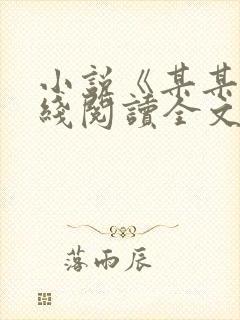 小說《某某
綫閱讀全文
落雨辰